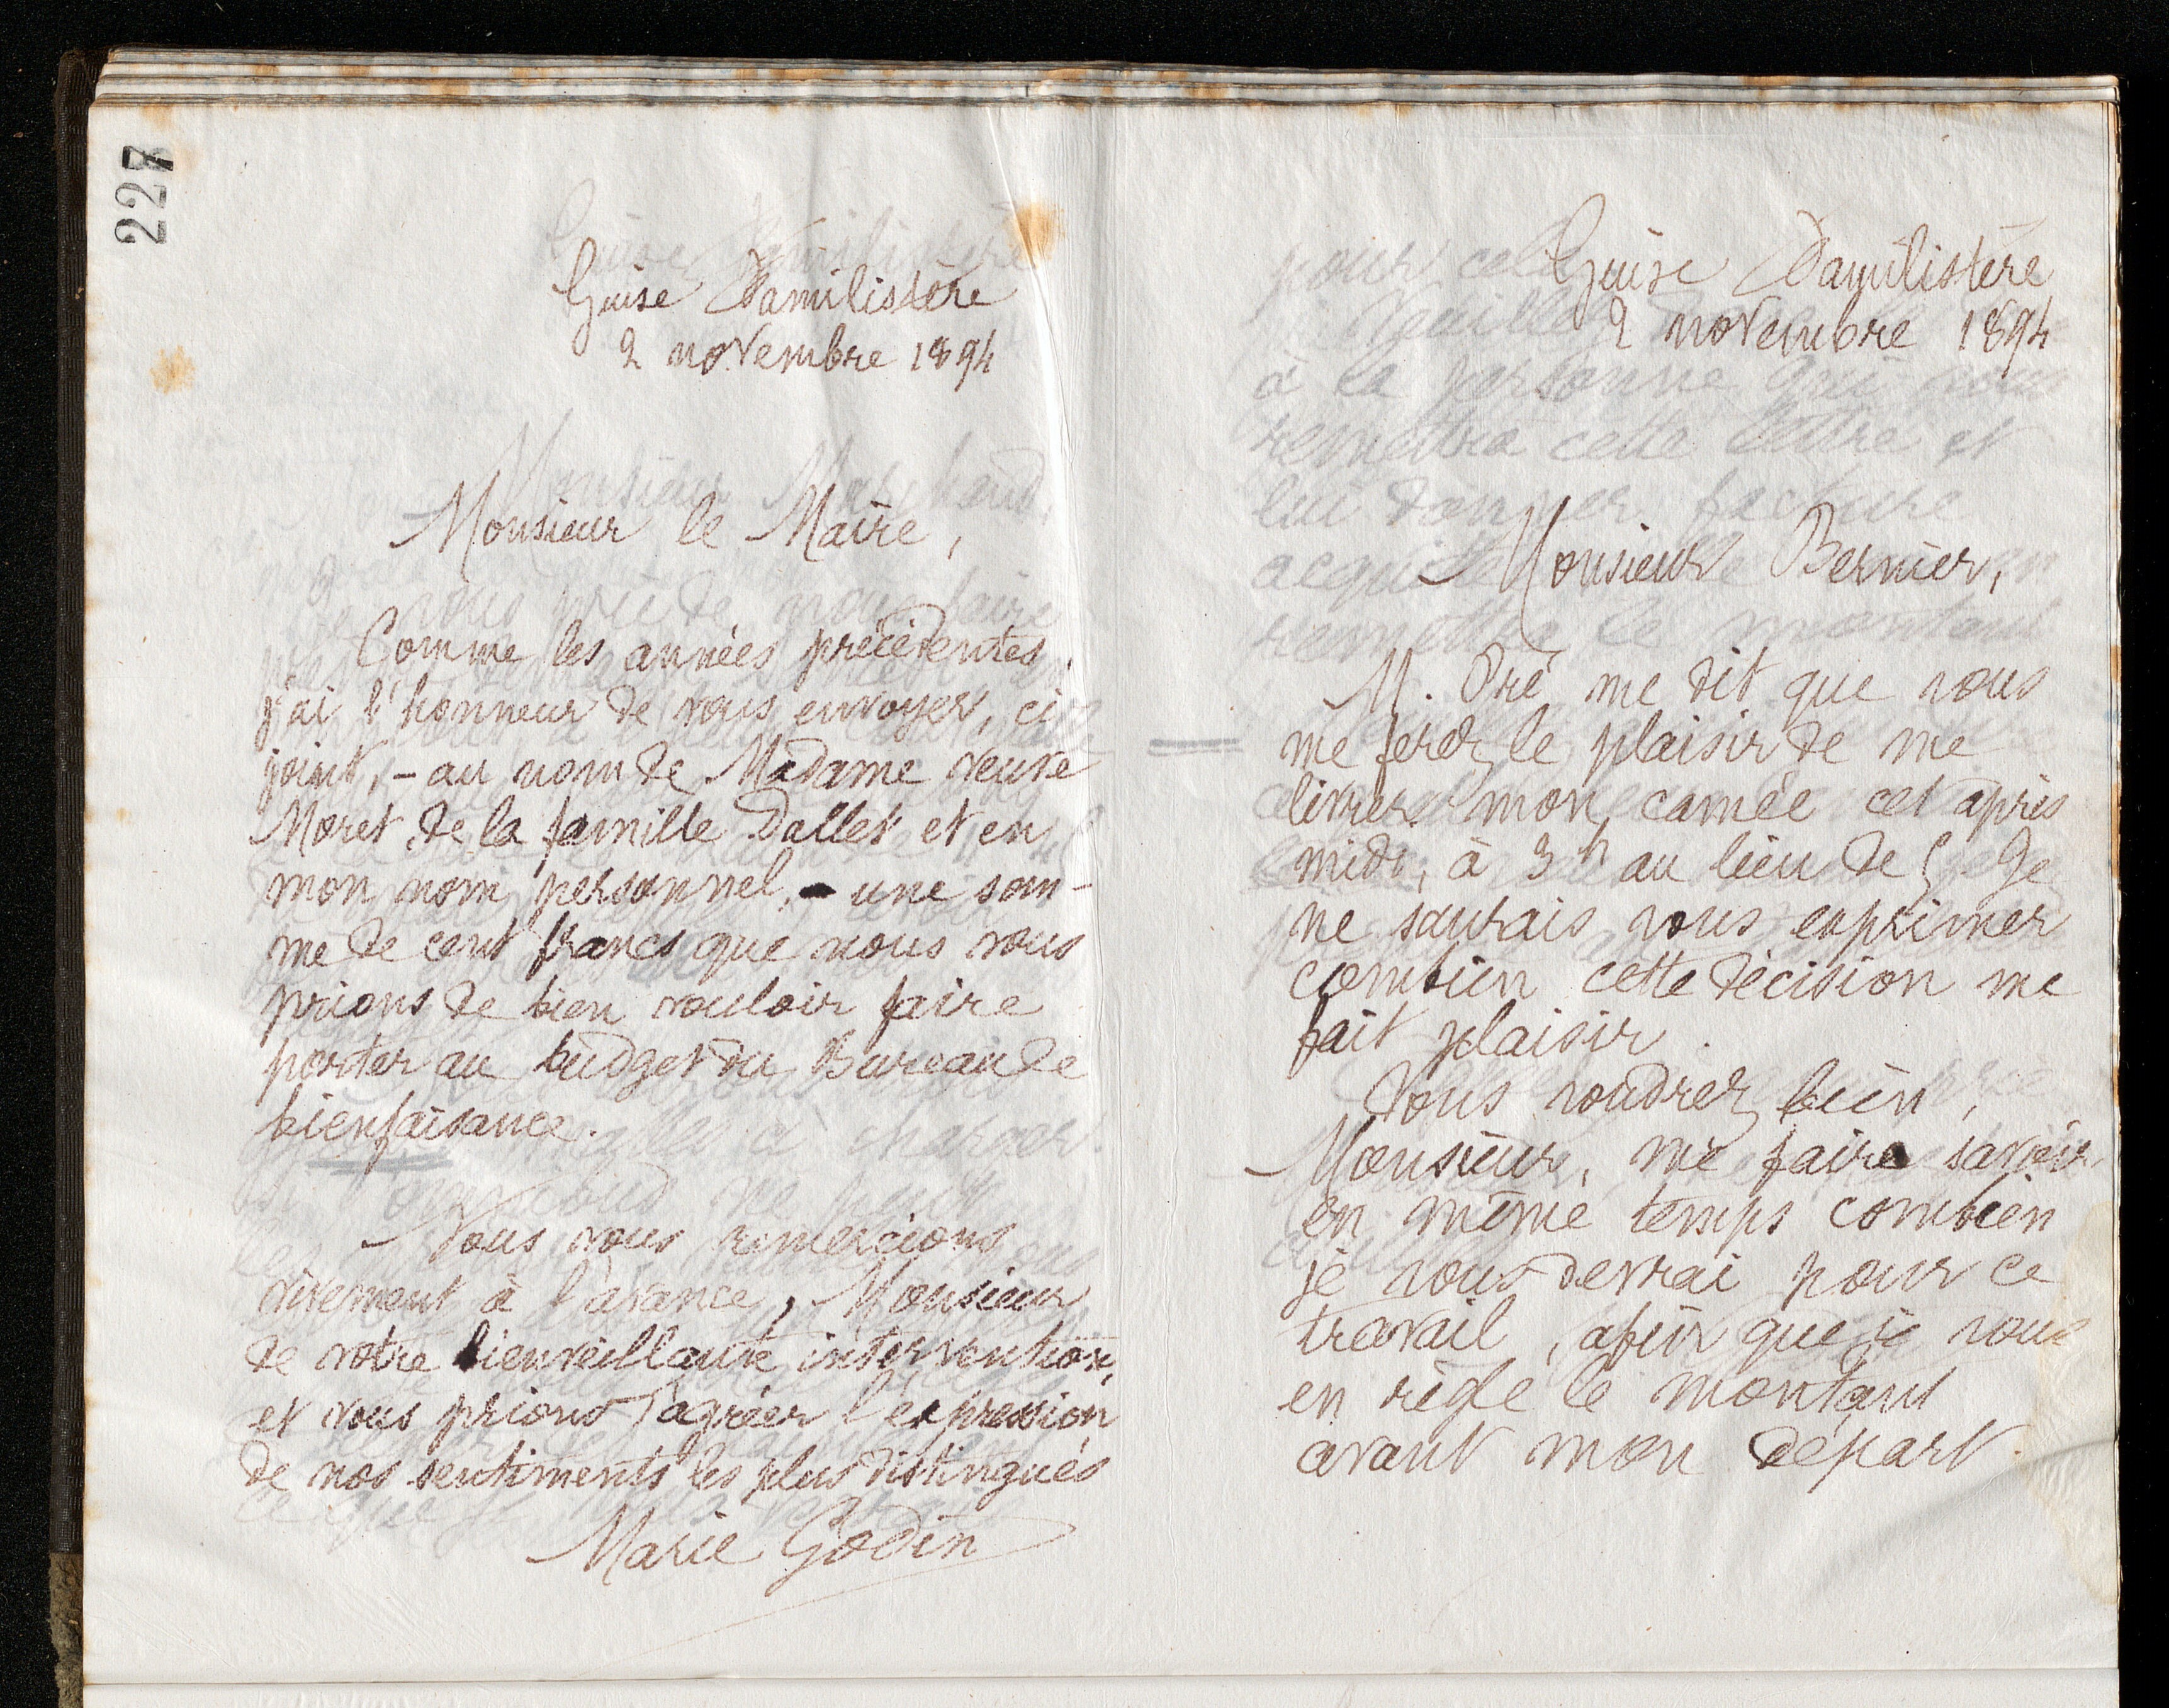 227
Guise Familistère
2 novembre 1894
Monsieur le Maire,
Comme les années précédentes
j'ai l'honneur de vous envoyer, ci
joint, - au nom de Madame veuve
Moret, de la famille Dallet et en
mon nom personnel, - une som-
me de cent francs que nous vous
prions de bien vouloir faire
porter au budget du Bureau de
bienfaisance.
Nous vous remercions
vivement à l'avance, Monsieur
de votre bienveillante intervention,
et vous prions d'agréer l'expression
de nos sentiments les plus distingués
Marie Godin
Guise Familistère
2 novembre 1894
Monsieur Bernier,
M. Pré me dit que vous
me ferez le plaisir de me
livrer mon camée cet après
midi, à 3h au lieu de 5. Je
ne saurais vous exprimer
combien cette décision me
fait plaisir.
Vous voudrez bien,
Monsieur, me faire savoir
en même temps combien
je vous devrai pour ce
travail, afin que je vous
en règle le montant
avant mon départ.